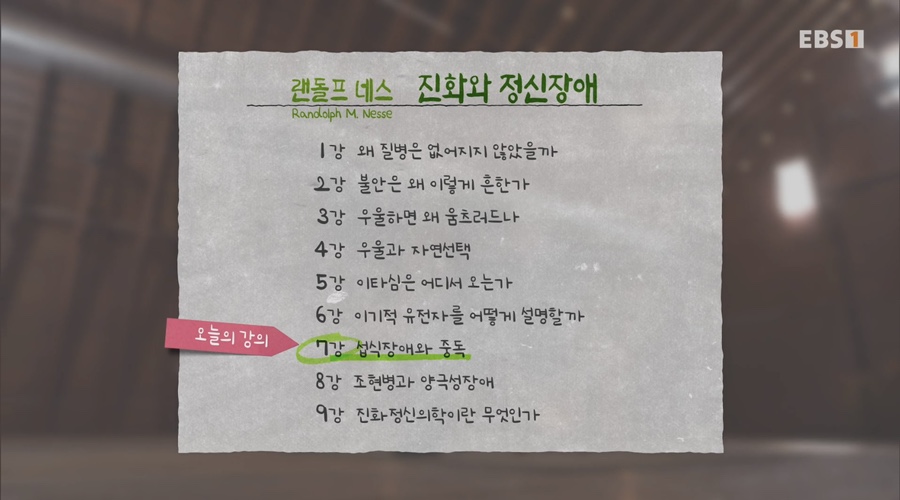 EBS1
랜돌프 네스 진화와 정신장애
Randolph M. Nesse
1강 왜 질병은 없어지지 않았을까
2강 불안은 왜 이렇게 흔한가
3강 우울하면 왜 움츠러드나
4강 우울과 자연선택
5강 이타심은 어디서 오는가
6강 이기적 유전자를 어떻게 설명할까
오늘의 강의
7강 섭식장애와 중독
8강 조현병과 양극성장애
9강 진화정신의학이란 무엇인가